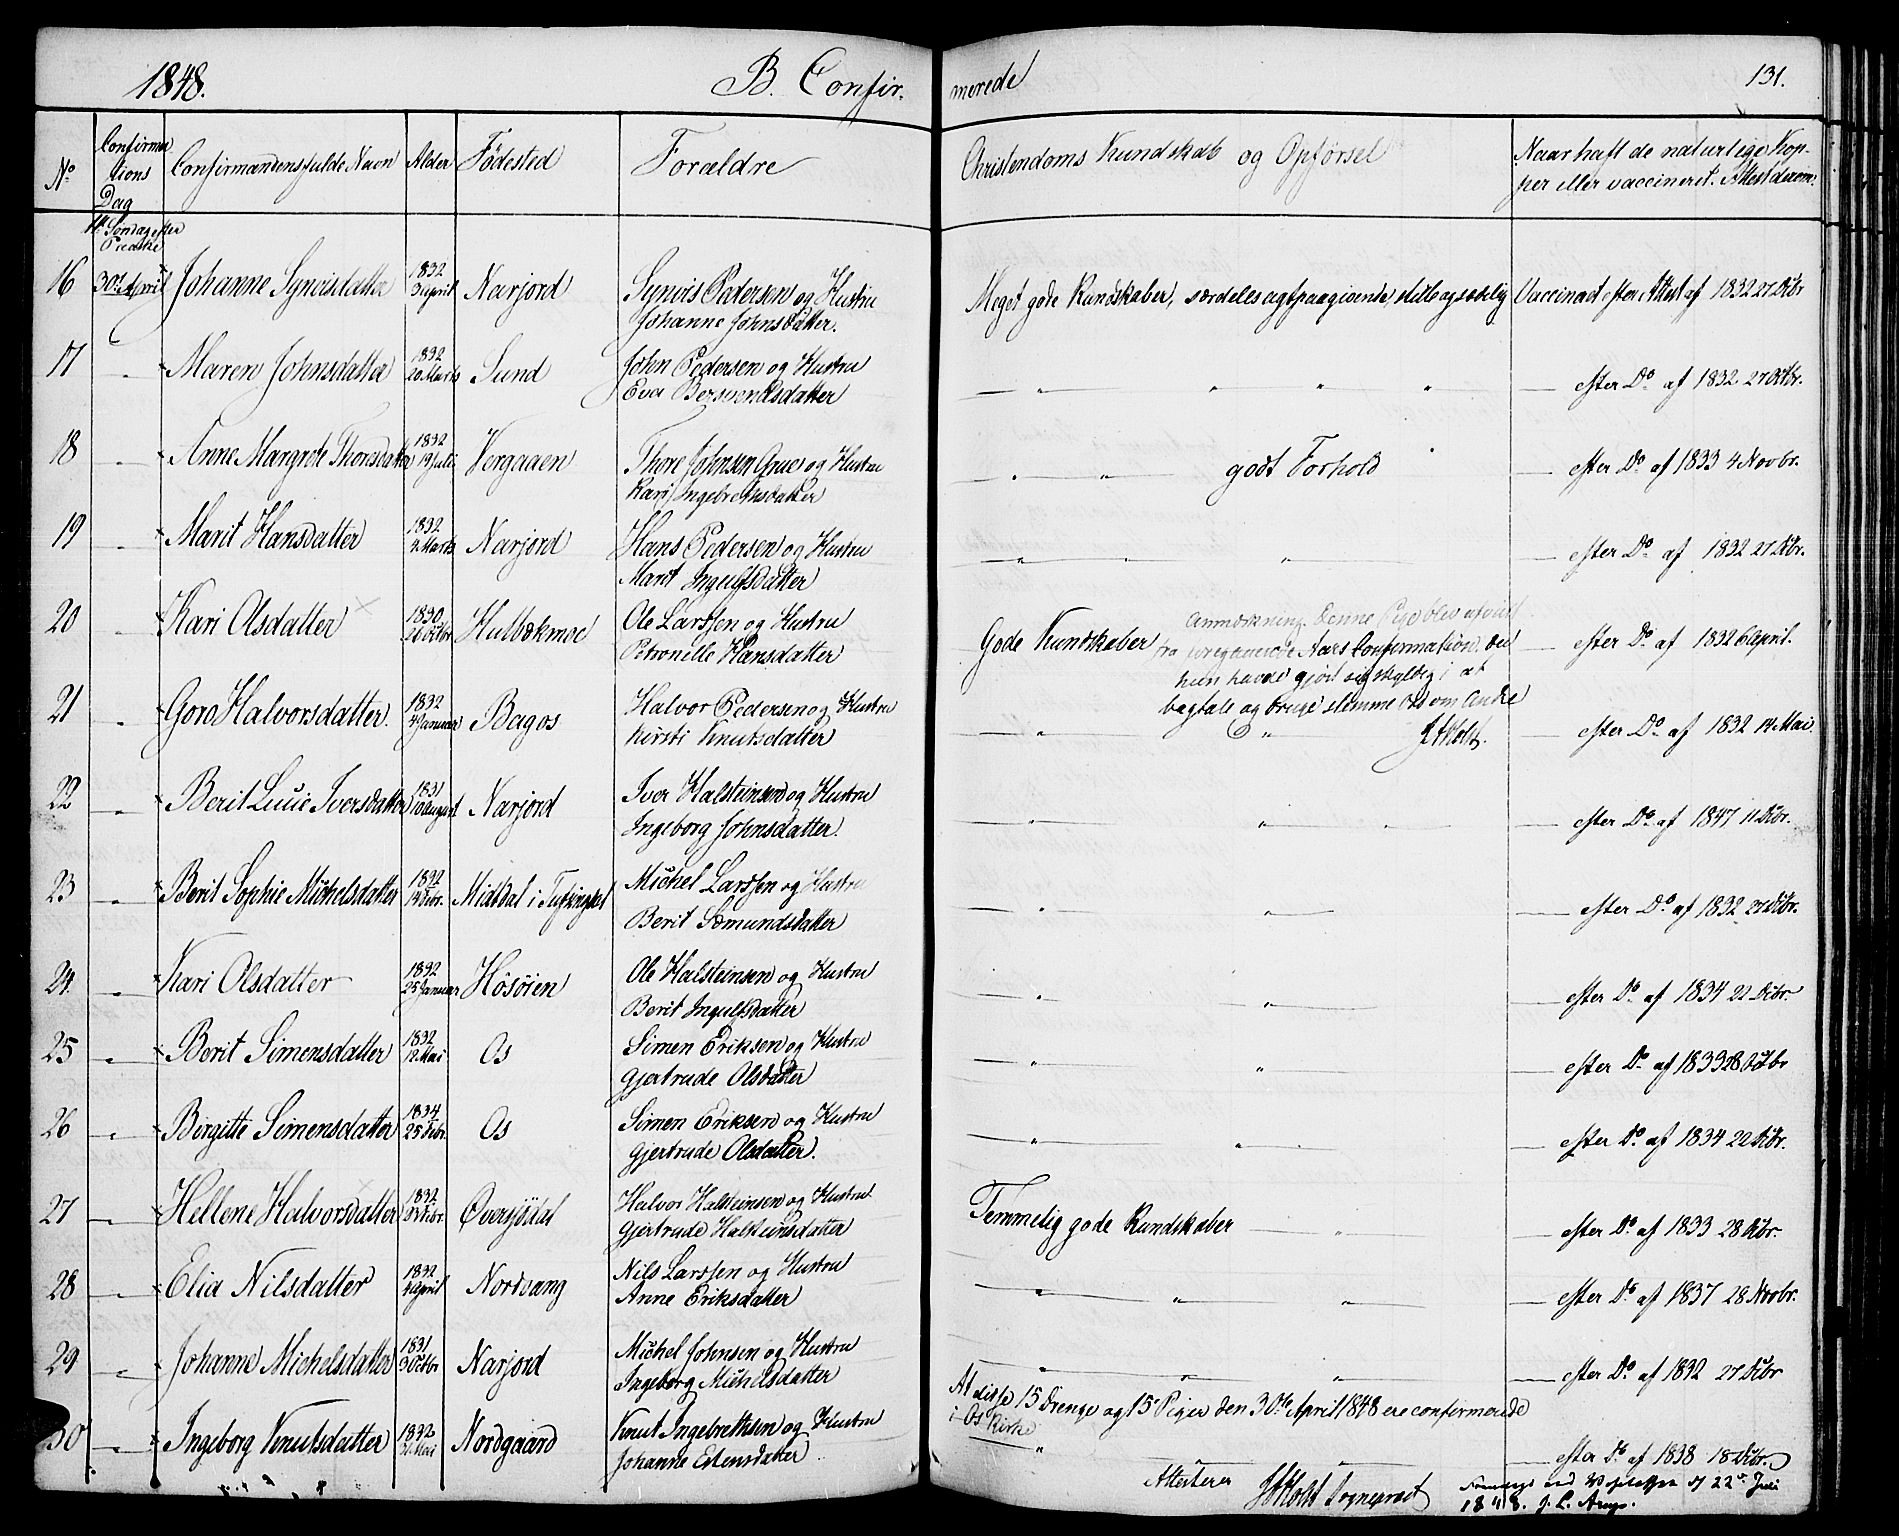 1848.
B. Confir-
merede
131.
No
Confirma
tions
Dag
Confirmandens fulde Navn
Alder
Fødested
Forældre
Christendoms Kundskab og Opførsel
Naar haft de naturlige Kop-
per eller vaccineret. Attest derom.
1te Søndag efter
Paaske
16 30te April Johanne Synvisdatter 1832 3 April Narjord Synvis Pedersen og Hustru
Johanne Johnsdatter.
Meget gode Kundskaber, særdeles agtpaagivende stille og sædelig Vaccineret efter Attest af 1832 27 Octbr
17 " Maren Johnsdatter 1832 20 Marts Sund John Pedersen og Hustru
Eva Bersvendsdatter
" " " " — efter Do af 1832 27 Octbr.
18 " Anne Margrete Thoresdatter 1832 19 Juli Vergaaen Thore Johnsen Grue og Hustru
Kari Ingebrethsdatter
" " godt Forhold " — efter Do af 1833 4 Novbr.
19 " Marit Hansdatter 1832 4 Marts Narjord Hans Pedersen og Hustru
Marit Ingulfsdatter
" " " — efter Do af 1832 27 Octbr.
20 " Kari Olsdatter 1830 26 Octbr Hulbækmoe Ole Larssen og Hustru
Petronelle Hansdatter
Gode Kundskaber
Anmærkning. Denne Pige blev afviist
fra foregaaende Aars Confirmation. Da
hun havde gjort sig skyldig i at
bagtale og bruge slemme Ord om Andre
J. Holst.
— efter Do af 1832 6 April.
21 " Goro Halvorsdatter. 1832 4 Januar Bagos Halvor Pedersen og Hustru
Kirsti Knutsdatter
" " — efter Do af 1832 14 Mai.
22 " Berit Lucie Iversdatter 1831 10 August Narjord Iver Halsteinsen og Hustru
Ingeborg Johnsdatter.
" " " — efter Do af 1847 11 Octbr.
23 " Berit Sophie Michelsdatter 1832 14 Debr. Midtdal i Tufsingdal Michel Larssen og Hustru
Berit Semundsdatter
" " — efter Do af 1832 27 Octbr.
24. " Kari Olsdatter 1832 25 Januar Høsøien Ole Halsteinsen og Hustru
Berit Ingulfsdatter
" " — efter Do af 1834 22 Octbr.
25 " Berit Simensdatter 1832 12 Mai Os Simen Eriksen og Hustru
Gjertrude Olsdatter
" " — efter Do af 1833 28 Octbr
26 " Birgitte Simensdatter 1834 25 Febr. Os Simen Eriksen og Hustru
Gjertrude Olsdatter.
" " — efter Do af 1834 22 Octbr.
27 " Hellene Halvorsdatter 1832 Øversjødal Halvor Halsteinsen og Hustru
Gjertrude Halsteinsdatter
Temmelig gode Kundskaber " — efter Do af 1833 28 Octbr.
28 " Elia Nilsdatter 1832 4 April Nordvang Nils Larssen og Hustru
Anne Eriksdatter
" " " — efter Do af 1837 28 Novbr.
29 " Johanne Michelsdatter 1831 3 Octbr Narjord Michel Johnsen og Hustru
Ingeborg Michelsdatter
" " — efter Do af 1832 27 Octbr
At disse 15 Drenge og 15 Piger den 30te April 1848 ere confirmerede
i Os Kirke
30 " Ingeborg Knutsdatter 1832 Mai Nordgaard Knut Ingebrethsen og Hustru
Johanne Estensdatter
" — efter Do af 1838 18 Octbr.
Attesterer
J. Holst Sogneprest
ved Visitatsen d. 22de Juli
1848. J. L. Arup.